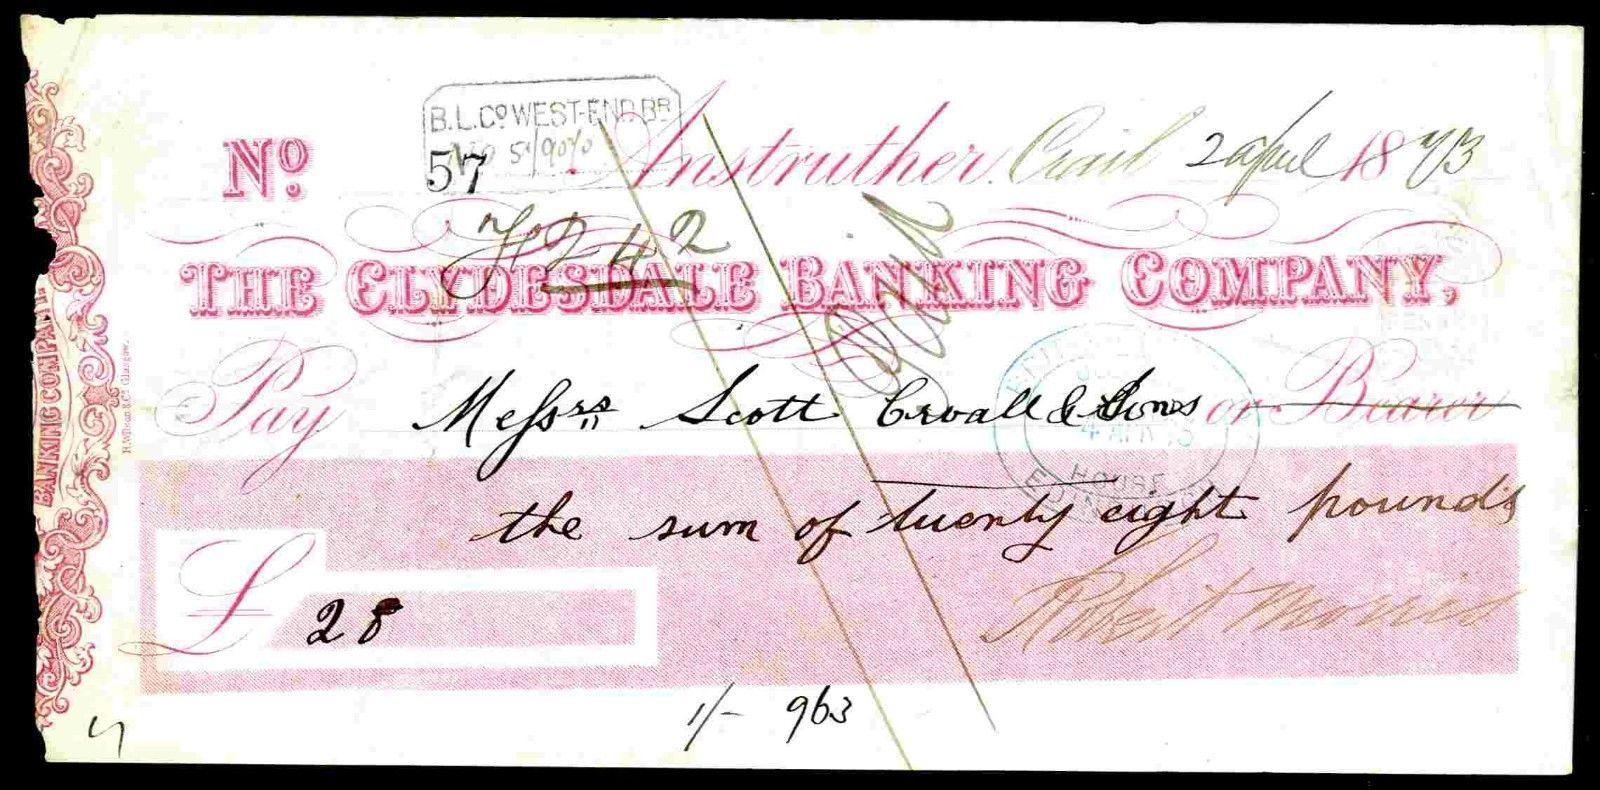 B.L.Co WEST-END BR
No
57
Anstruther. Crail 2 april 1873
242
THE CLYDESDALE BANKING COMPANY,
Paid
Pay Messrs Scott Croall & Sons or Bearer
HOUSE
the sum of twenty eight pounds
£ 28
Robert Morris
1/- 963
BANKING COMPANY
H. Wilson & Co. Glasgow.